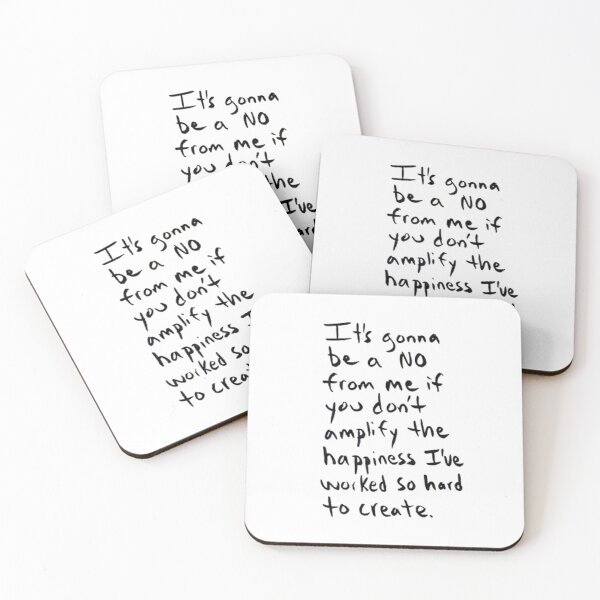 It's gonna
be a NO
from me if
you don't
the
I've
It's gonna
be a NO
from me if
you don't
amplify the
happiness I've
It's gonna
be a NO
from me if
you don't
amplify the
happiness I
worked so
to
It's gonna
be a NO
from me if
you don't
amplify the
happiness I've
worked so hard
to create.